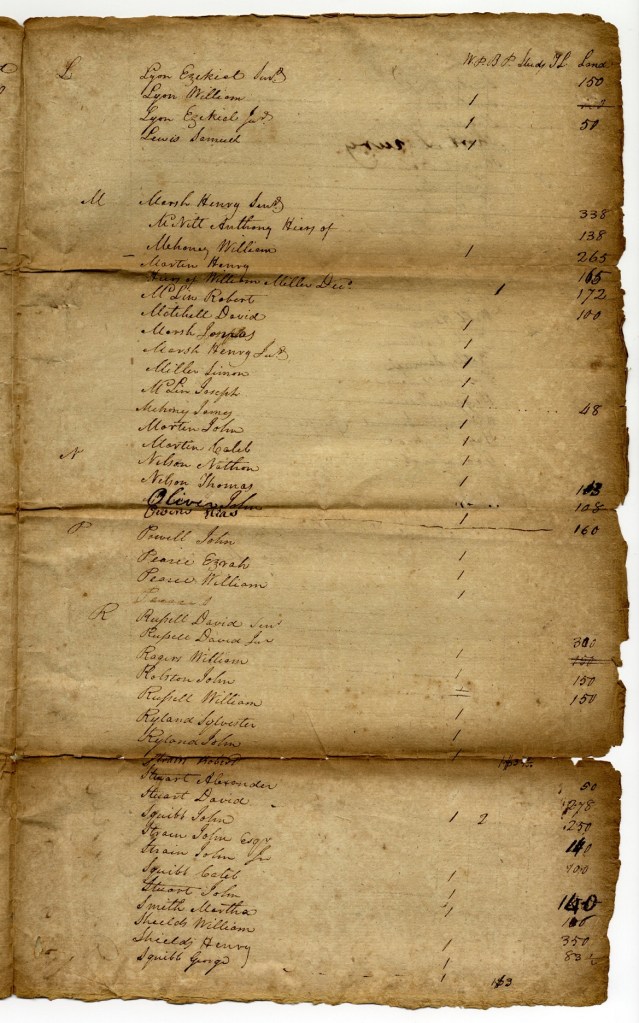 W.P. B P Studs T L Land
L Lyon Ezekiel Senr 150
Lyon William 1
Lyon Ezekiel Jur 1 50
Lewis Samuel 1
M Marsh Henry Senr 338
McNitt Anthony Hiers of 138
Mehoney William 1 265
Martin Henry 165
Heirs of William Miller Decd 1 172
McLin Robert 100
Mitchell David 1
Marsh 1
Marsh Henry Jur 1
Miller Simon 1
McLin Joseph 1 48
Mehoney James 1
Martin John 1
Martin Caleb 1
N Nelson Nathan 1
Nelson Thomas 1 113
Oliver John 108
Owens 1 160
P Powell John
Pearce Ezrah 1
Pearce William 1
R Russell David Senr
Russell David Jur 300
Rogers William 1 150
Rolston John 1 150
Russell William 1 150
Ryland Sylvester 1
Ryland John 1
Strain Robert
Stuart Alexander 50
Stuart David 278
Squibb John 1 2 250
Strain John Esqr 140
Strain John Jr 100
Squibb Caleb 1
Stuart John 1 140
Smith Martha
Sheilds William 350
Shields Henry 1 83
Squibb George 1
1 163